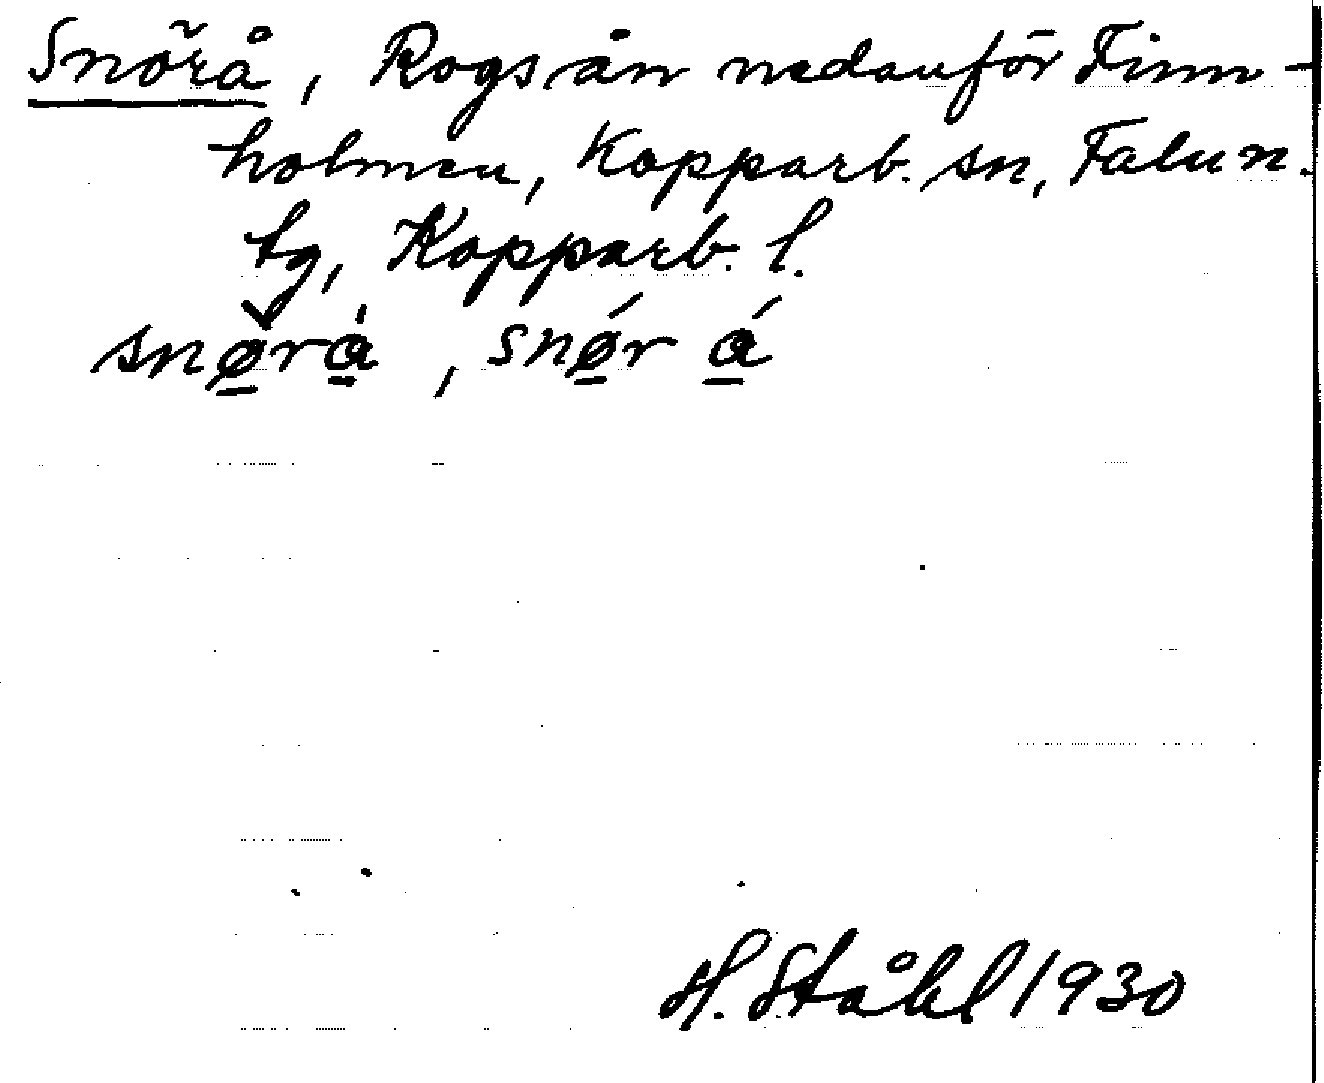 Snörå, Rogsån nedanför Finn-
holmen, Kopparb. sn, Falun.
tg, Kopparb. l.
snø̲̌rα̲̍, snǿ̲r ά̲
H. Ståhl 1930